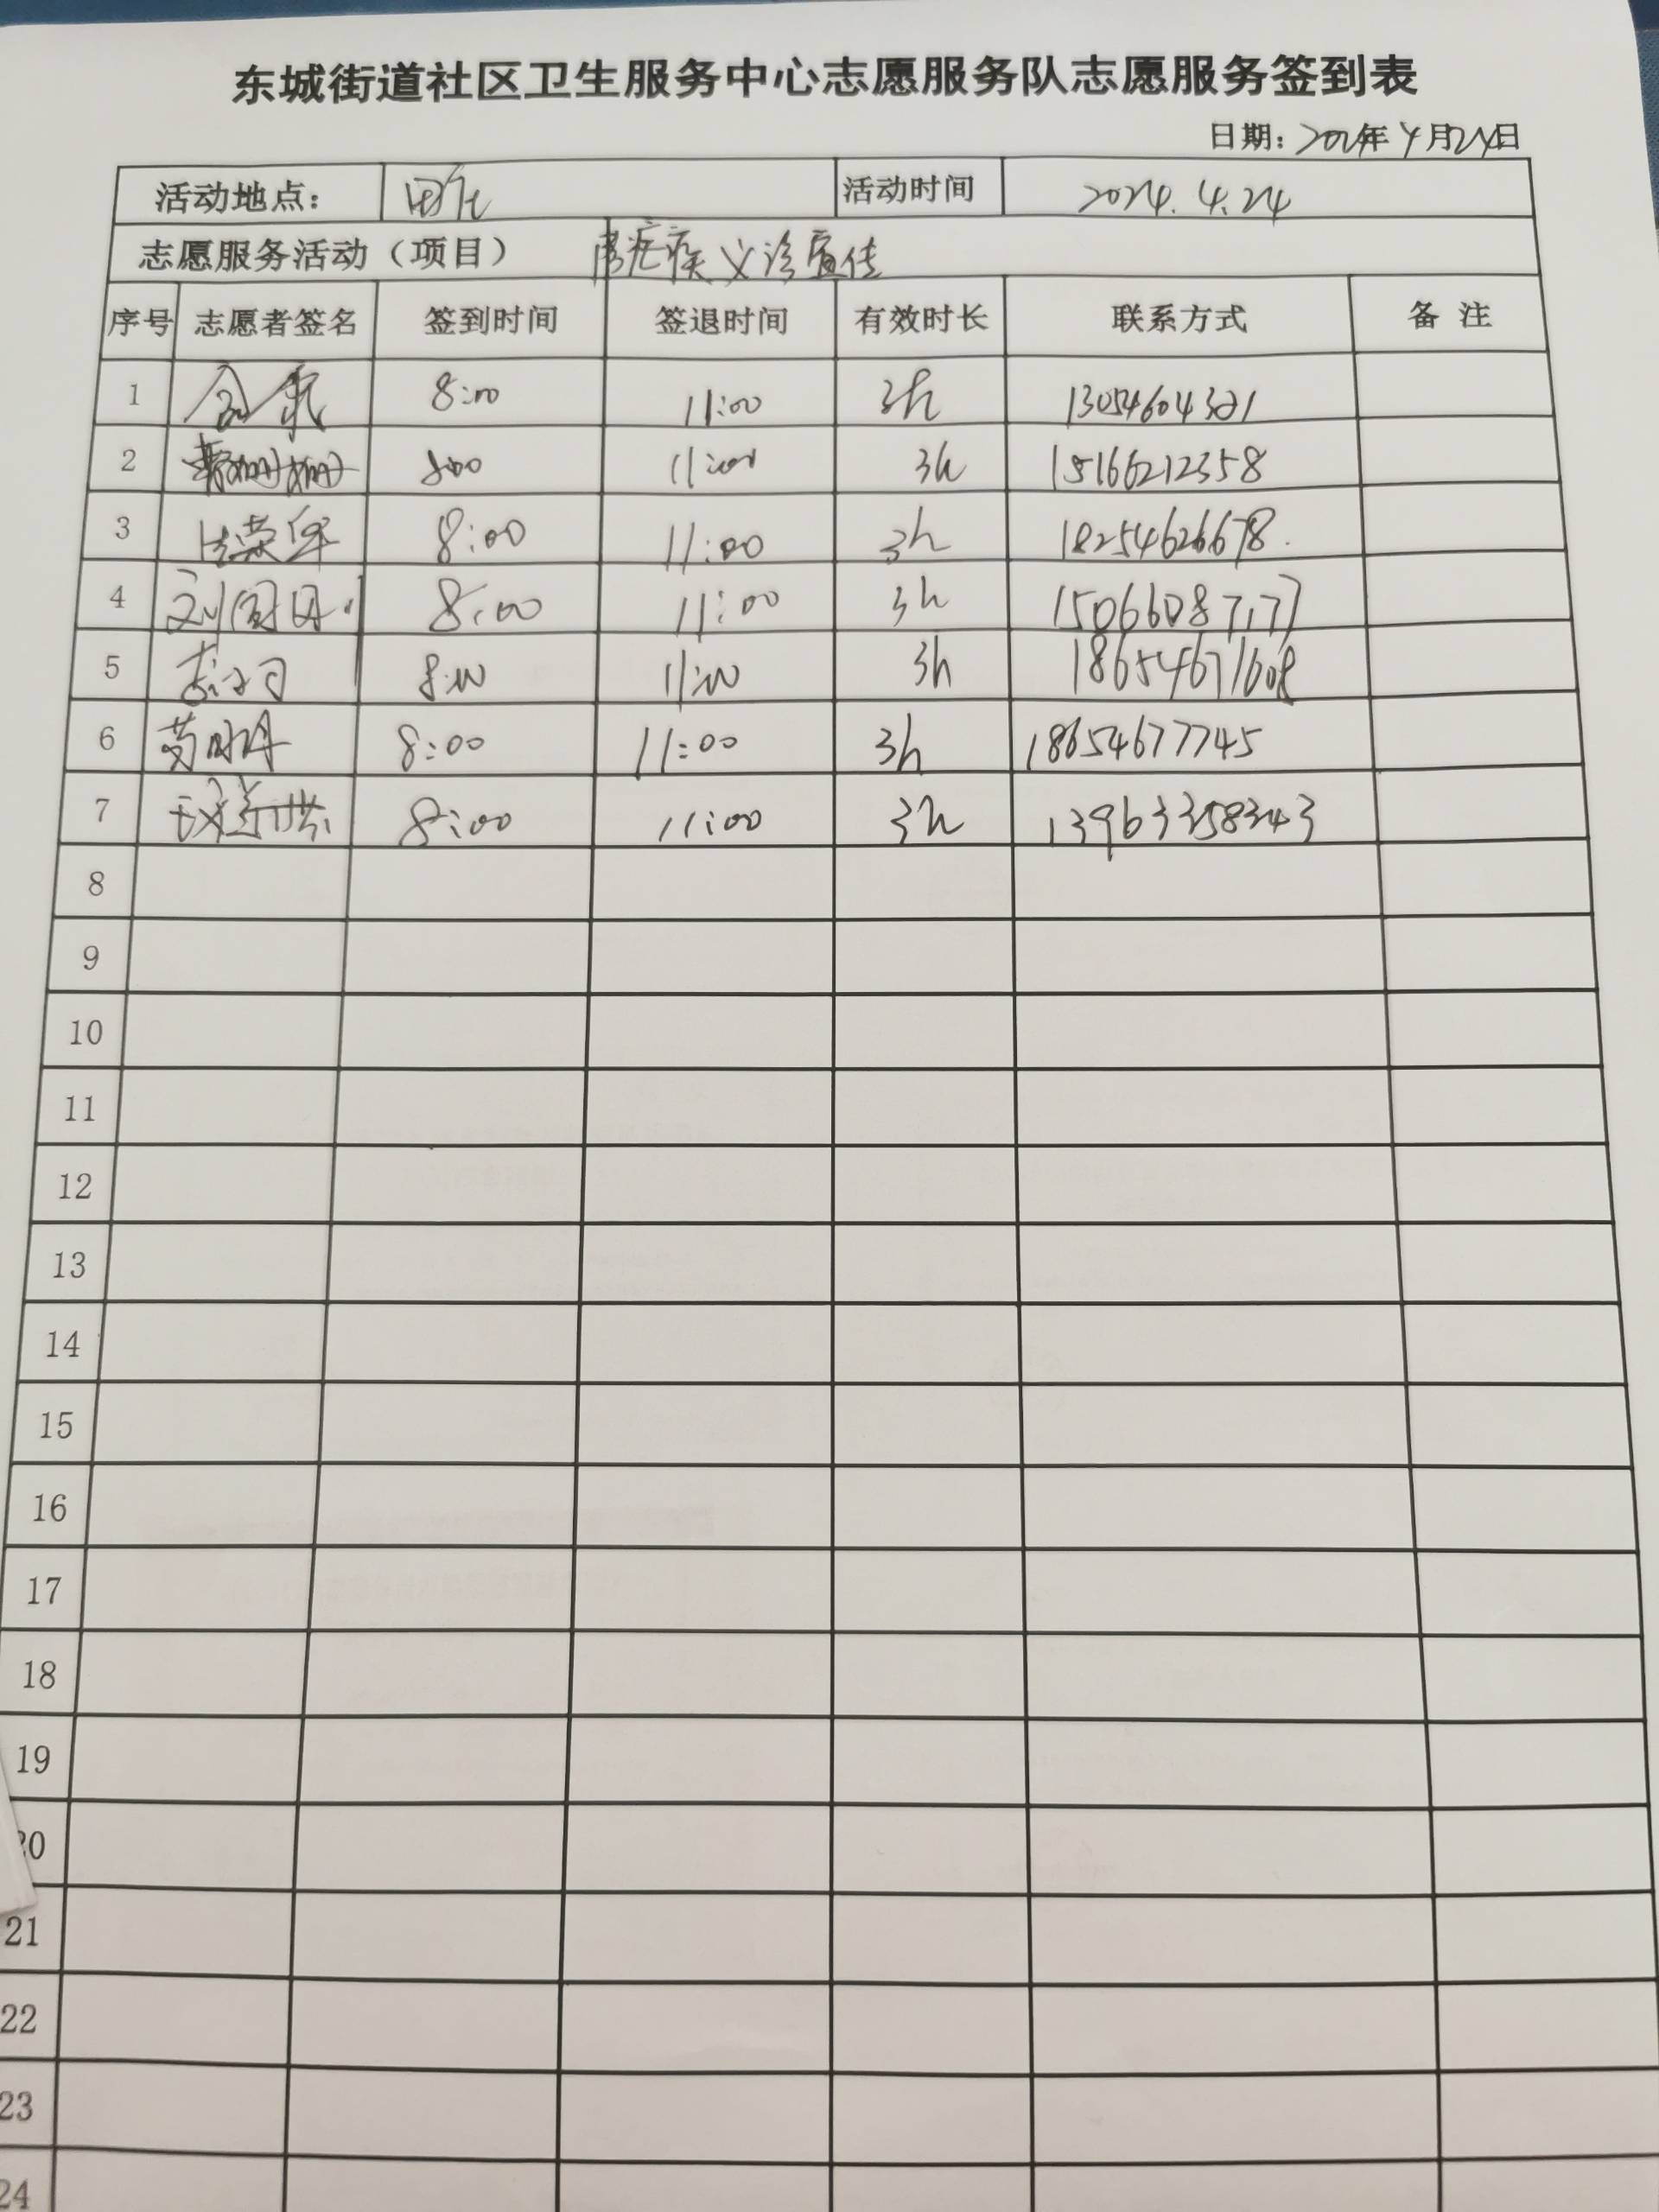 东城街道社区卫生服务中心志愿服务队志愿服务签到表
日期：2024年4月24日
活动地点： 活动时间 2024.4.24
志愿服务活动（项目） 义诊宣传
序号 志愿者签名 签到时间 签退时间 有效时长 联系方式 备注
1 8:00 11:00 3h
2 8:00 11:00 3h 15166212358
3 8:00 11:00 3h 18254626678
4 8:00 11:00 3h
5 8:00 11:00 3h 18654671608
6 8:00 11:00 3h 18654677745
7 8:00 11:00 3h 13963358343
8
9
10
11
12
13
14
15
16
17
18
19
20
21
22
23
24